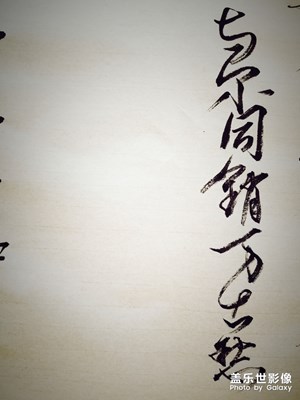 与尔同销万古愁
盖乐世影像
Photo by Galaxy